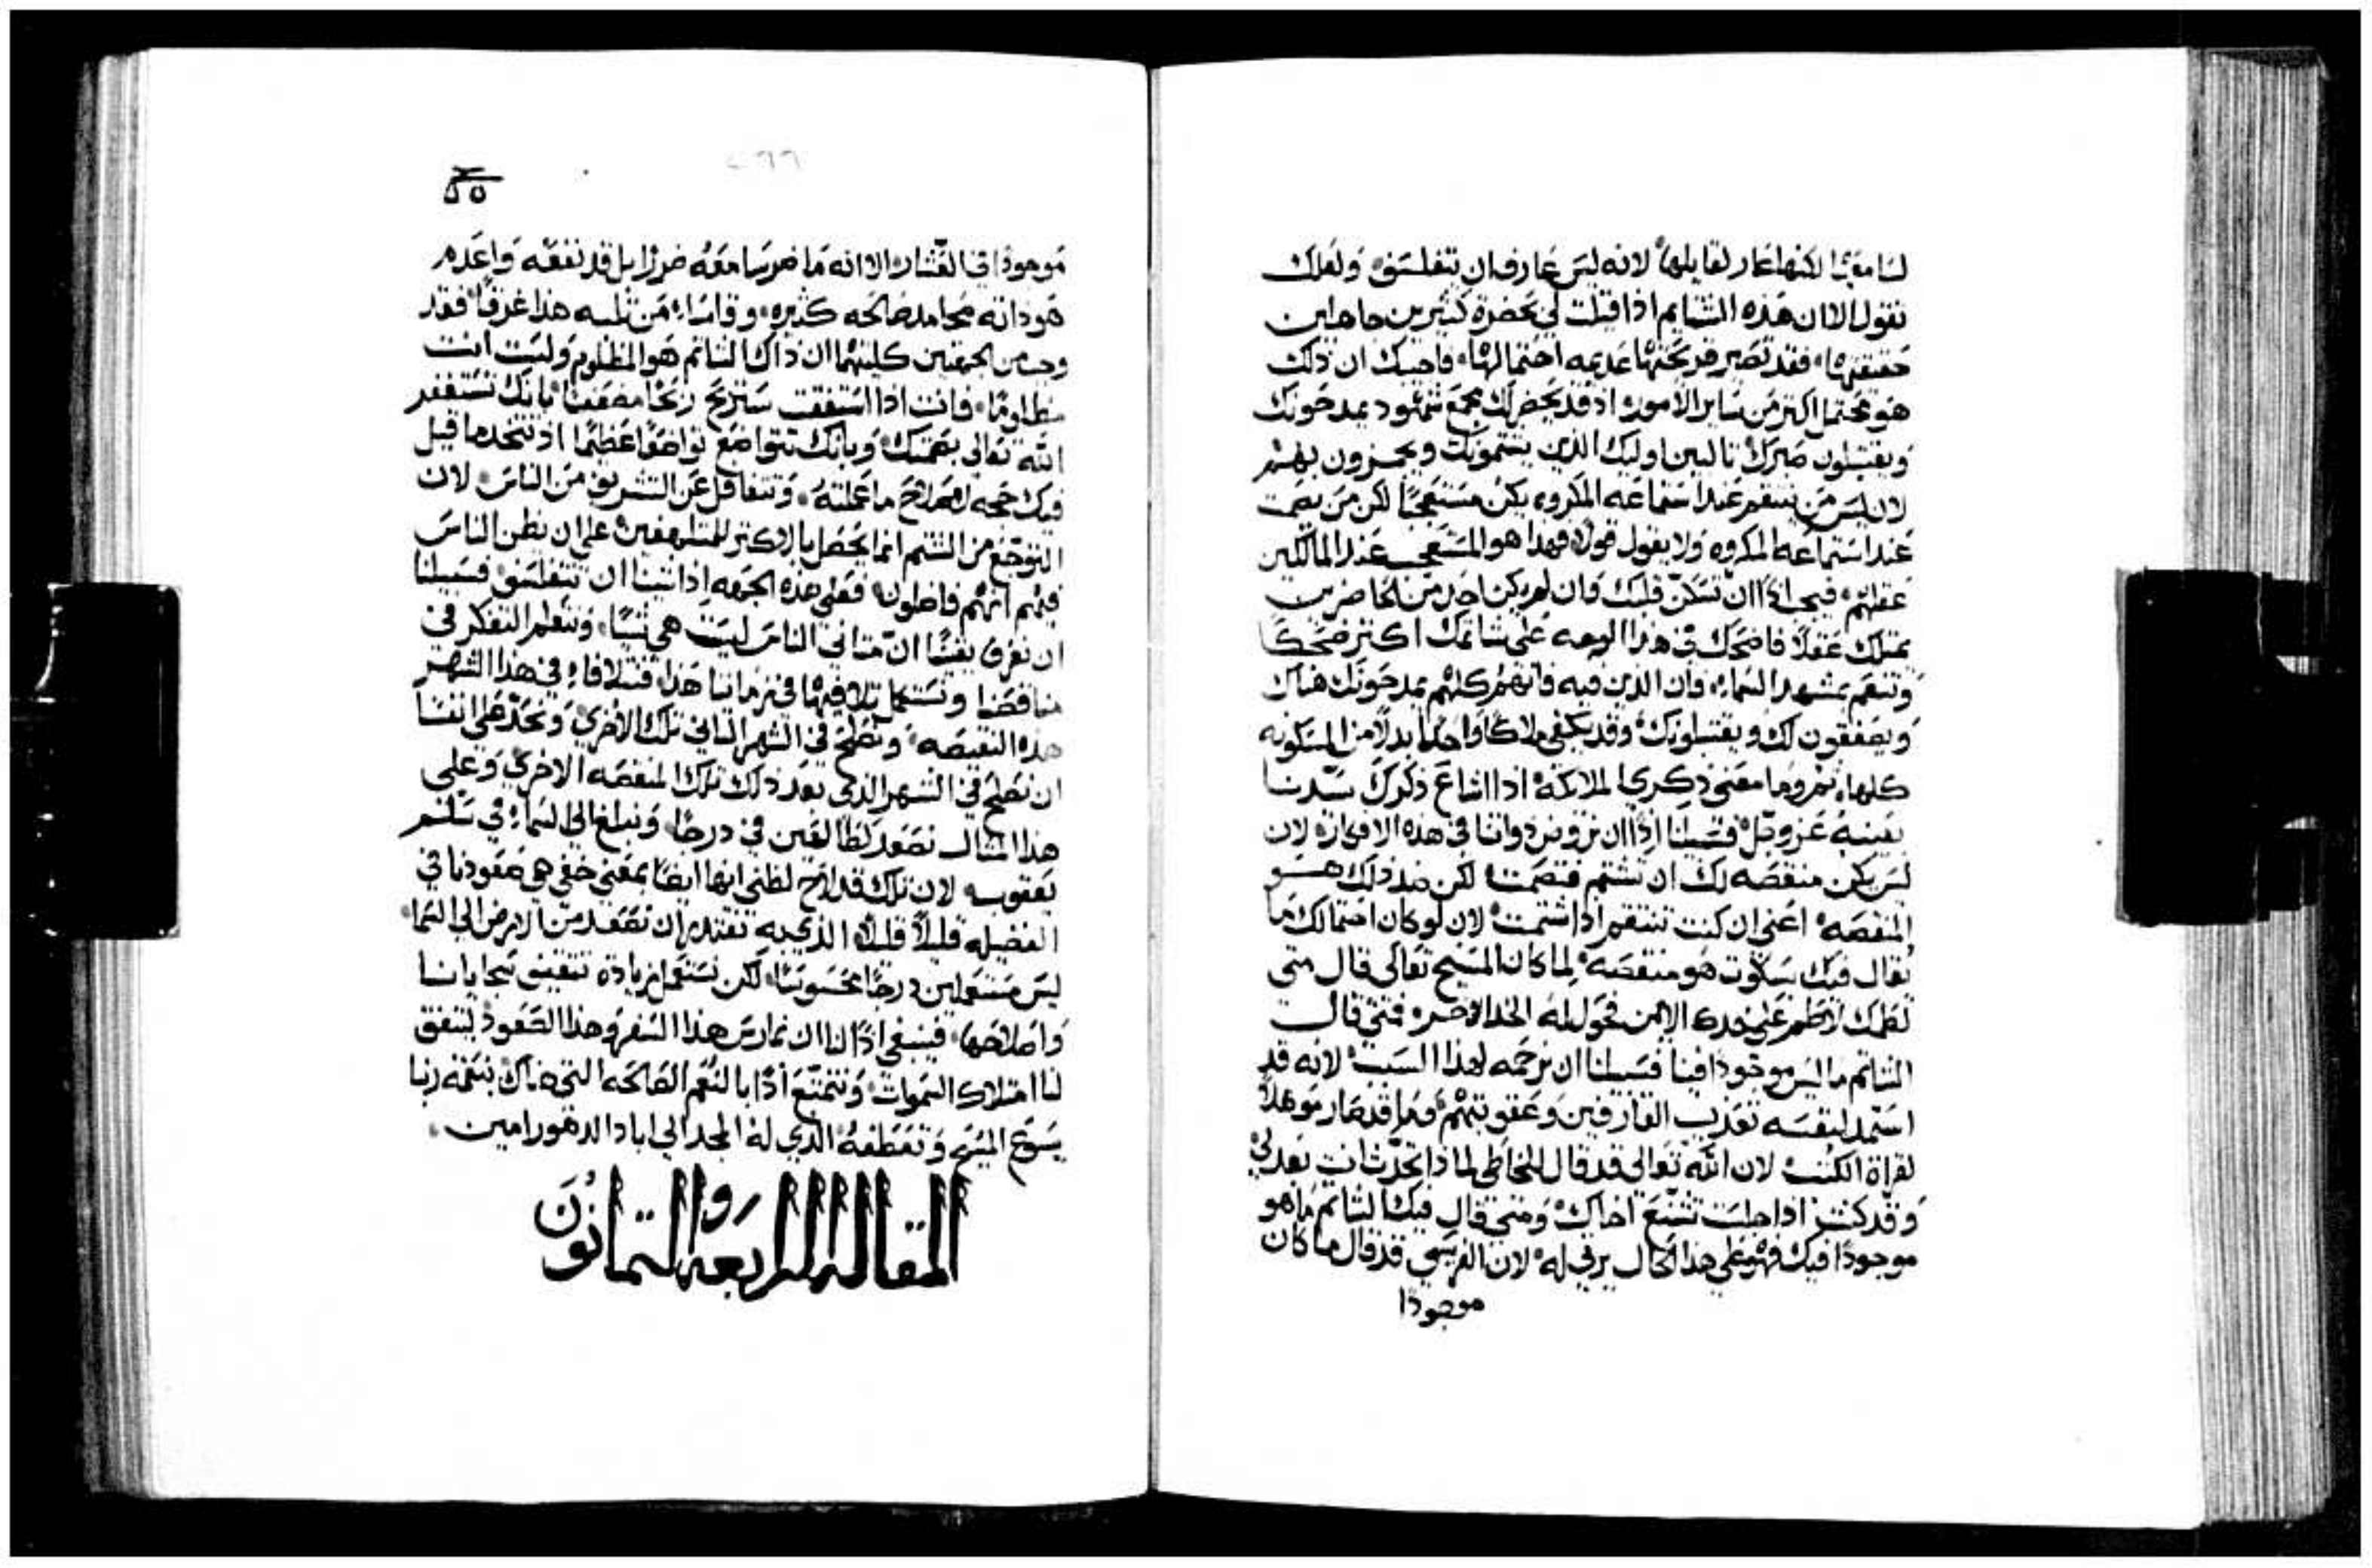 لسامعها لكنها عار لقايلها لانه ليس عارف ان يتفلسف ولعلك
تقول الا ان هذه الشتايم اذا قيلت لي بحضرة كثيرين جاهلين
حقيقتها فقد تصير قريحتها عديمه احتمالها فاجيبك ان ذلك
هو محتمل اكتر من ساير الامور اذ قد يحضر لك مجمع شهود يمدحونك
ويقتبلون صبرك تالبين اوليك الذين يشتمونك ويهزون بهم
لان ليس من ينتقم عند استماعه المكروه يكن مستعجبًا لكن من يصمت
عند استماعه المكروه ولا يقول قولاً فهذا هو المستعجب عند المالكين
عقلهم فيجب اذًا ان تسكن قلبك وان لم يكن احد من الحاضرين
يمتلك عقلاً فاضحك في هذا الوجه على شاتمك اكتر ضحكًا
وتنعم بمشهد السماء فان الذين فيه فانهم كلهم يمدحونك هناك
ويصفقون لك ويقتبلونك وقد يكفي ملاكًا واحدًا بدلاً من المسكونه
كلها وما معنى ذكري الملايكه اذا اشاع ذكرك سيدنا
بعينه عز وجل فسبيلنا اذًا ان نروض ذواتنا في هذه الافكار لان
ليس يكن منقصه لك ان تشتم فتصمت لكن ضد ذلك هو
المنقصه اعني ان كنت تنتقم اذا شتمت لان لو كان احتمالك ما
يقال فيك بسكوت هو منقصه لما كان المسيح تعالى قال متى
لطمك لاطم على خدك الايمن فحول له الخد الاخر فمتى قال
الشاتم ما ليس موجودًا فينا فسبيلنا ان نرحمه لهذا السبب لانه قد
استمد لنفسه تعذيب القارفين وعقوبتهم وما قد صار موهلاً
لقراة الكتب لان الله تعالى قد قال للخاطي لماذا تحدث انت بعدلي
وقد كنت اذا جلست تشنع اخاك ومتى قال فيك الشاتم ما هو
موجودًا فيك فهو على هذا الحال يرثى له لان الفريسي قد قال ما كان
موجودًا
موجودًا في العشار الا انه ما ضر سامعه ضررًا بل قد نفعه واعدم
هو ذاته محامد صالحه كثيره وقاسا من ثلبه هذا غرقًا فقد
من الجهتين كلتيهما ان ذاك الشاتم هو المظلوم وليست انت
مظلومًا فانت اذا استفقت ستربح ربحًا مضعفًا بانك تستغفر
الله تعالى بصمتك وبانك تتواضع تواضعًا عظيمًا اذ تتخد ما قيل
فيك حجه لاصلاح ما عملته وتتغافل عن التشريف من الناس لان
التوجع من الشتم انما يحصل بالاكتر للمتلهفين على ان يظن الناس
فيهم انهم فاضلون فعلى هذه الجهه اذا شينا ان نتفلسف فسبيلنا
ان نعرف يقينًا ان متاني الناس ليست هي شيًا ونتعلم التفكر في
مناقصنا ونستعمل تلافيها في زماننا هذا فنتلافا في هذا الشهر
هذه النقيصه ونصلح في الشهر التاني تلك الاخرى ونحد على انفسنا
ان نصلح في الشهر الذي بعد ذلك تلك المنقصه الاخرى وعلى
هذا المثال نصعد كطالعين في درجًا ونبلغ الى السماء في سلم
يعقوب لان تلك قد لاح لظني انها ايضًا بمعنى خفي هي صعودنا في
الفضيله قليلاً قليلاً الذي به نقتدر ان نصعد من الارض الى السما
ليس مستعملين درجًا محسوسًا لكن نستعمل زيادة تتقيف سجايانا
واصلاحها فينبغي اذًا لنا ان نمارس هذا السفر وهذا الصعود ليتفق
لنا امتلاك السموات ونتمتع اذًا بالنعم الصالحه التي هناك بنعمة ربنا
يسوع المسيح وتعطفه الذي له المجد الى اباد الدهور امين
المقاله الرابعه والتمانون